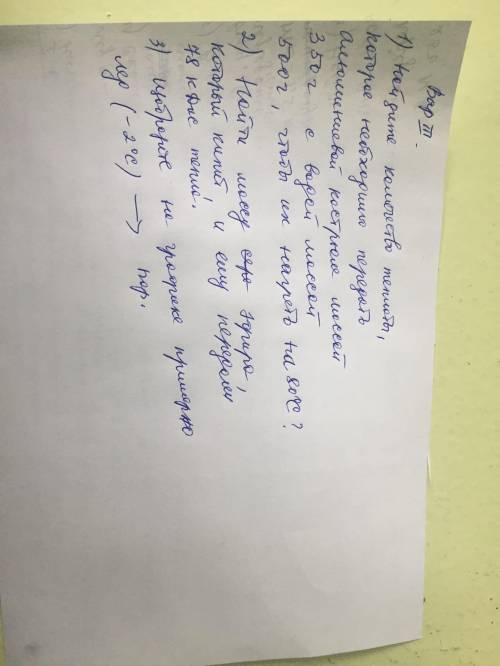 Вар III.
1) Найдите количество теплоты,
которое необходимо передать
алюминиевой кострюле массой
350г с водой массой
500г, чтобы их нагреть на 80°С?
2) Найти массу эфира,
который кипит, и ему передали
78 кДж тепла.
3) Изобразите на графике примерно
лед (-2°С) → пар.